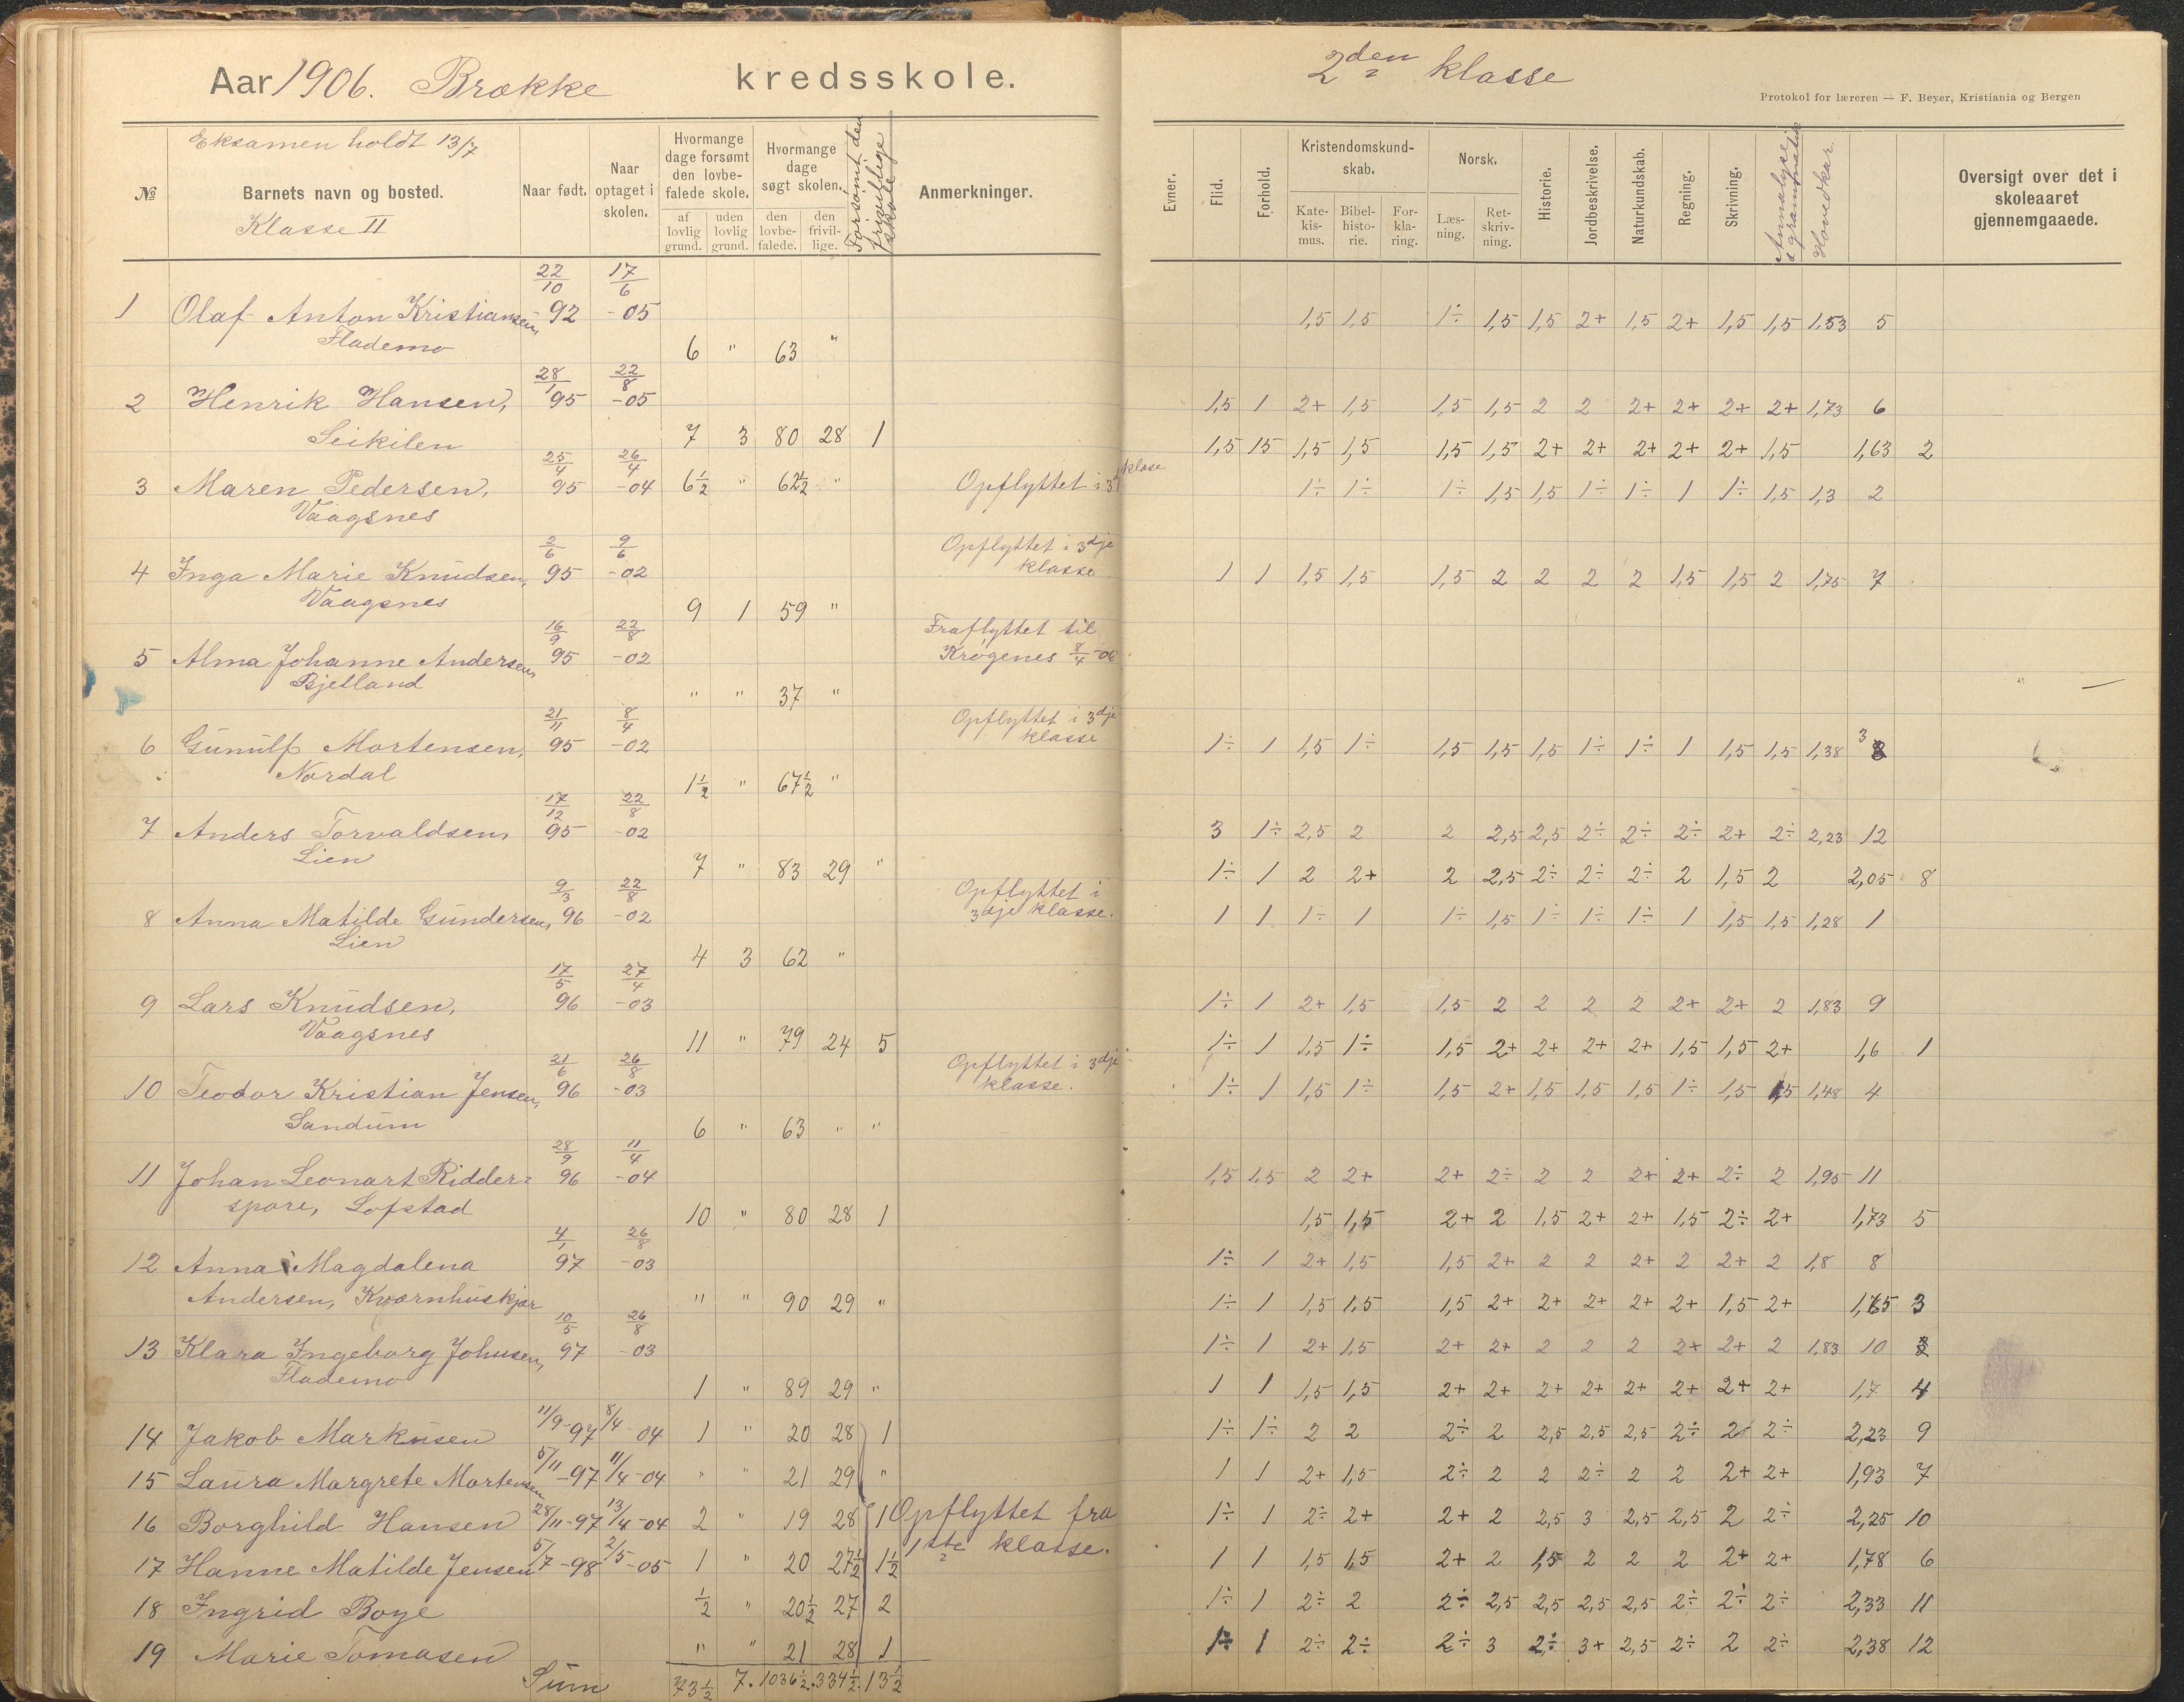 Aar 1906. Brække kredsskole.
Eksamen holdt 13/7
№
Barnets navn og bosted.
Klasse II
Naar født.
Naar optaget i skolen.
Hvormange dage forsømt den lovbefalede skole.
af lovlig grund.
uden lovlig grund.
Hvormange dage søgt skolen.
den lovbefalede.
den frivillige.
Forsømt den frivillige skole
Anmerkninger.
1 Olaf Anton Kristiansen, 22/10 92 17/6 -05
Flademo 6 " 63 "
2 Henrik Hansen, 28/1 95 22/8 -05
Seikilen 7 3 80 28 1
3 Maren Pedersen, 25/4 95 26/4 -04 6½ " 62½ " Opflyttet i 3d klase
Vaagsnes
4 Inga Marie Knudsen, 2/6 95 9/6 -02 Opflyttet i 3dje klasse
Vaagsnes 9 1 59 "
5 Alma Johanne Andersen, 16/9 95 22/8 -02 Fraflyttet til Krøgenes 8/4 -06
Bjelland " " 37 "
6 Gunulf Mortensen, 21/11 95 8/4 -02 Opflyttet i 3dje klasse
Nordal 1½ " 67½ "
7 Anders Torvaldsen, 17/12 95 22/8 -02
Lien 7 " 83 29 "
8 Anna Matilde Gundersen, 9/3 96 22/8 -02 Opflyttet i 3dje klasse.
Lien 4 3 62 "
9 Lars Knudsen, 17/5 96 27/4 -03
Vaagsnes 11 " 79 24 5
10 Teodor Kristian Jensen, 21/6 96 26/8 -03 Opflyttet i 3dje klasse.
Sandum 6 " 63 " "
11 Johan Leonart Ridder= 28/9 96 11/4 -04
spore, Lofstad 10 " 80 28 1
12 Anna Magdalena 4/1 97 26/8 -03
Andersen, Kværnhuskjær " " 90 29 "
13 Klara Ingeborg Johnsen, 10/5 97 26/8 -03
Flademo 1 " 89 29 "
14 Jakob Markusen 11/9-97 8/4 -04 1 " 20 28 1
15 Laura Margrete Mortensen 5/11-97 11/4-04 " " 21 29 "
16 Borghild Hansen 28/11-97 13/4-04 2 " 19 28 1 Opflyttet fra
17 Hanne Matilde Jensen 5/7-98 2/5-05 1 " 20 27½ 1½ 1ste klasse.
18 Ingrid Boye ½ " 20½ 27 2
19 Marie Tomasen " " 21 28 1
Sum 73½ 7. 1036½. 334½. 13½
2den klasse
Protokol for læreren — F. Beyer, Kristiania og Bergen
Evner.
Flid.
Forhold.
Kristendomskundskab.
Katekismus.
Bibelhistorie.
Forklaring.
Norsk.
Læsning.
Retskrivning.
Historie.
Jordbeskrivelse.
Naturkundskab.
Regning.
Skrivning.
Hovedkar.
Oversigt over det i skoleaaret gjennemgaaede.
1,5 1,5 1÷ 1,5 1,5 2+ 1,5 2+ 1,5 1,5 1,53 5
1,5 1 2+ 1,5 1,5 1,5 2 2 2+ 2+ 2+ 2+ 1,73 6
1,5 15 1,5 1,5 1,5 1,5 2+ 2+ 2+ 2+ 2+ 1,5 1,63 2
1÷ 1÷ 1÷ 1,5 1,5 1÷ 1÷ 1 1÷ 1,5 1,3 2
1 1 1,5 1,5 1,5 2 2 2 2 1,5 1,5 2 1,75 7
1÷ 1 1,5 1÷ 1,5 1,5 1,5 1÷ 1÷ 1 1,5 1,5 1,38 3
3 1÷ 2,5 2 2 2,5 2,5 2÷ 2÷ 2÷ 2+ 2÷ 2,23 12
1÷ 1 2 2+ 2 2,5 2÷ 2÷ 2÷ 2 1,5 2 2,05 8
1 1 1÷ 1 1÷ 1,5 1÷ 1÷ 1÷ 1 1,5 1,5 1,28 1
1÷ 1 2+ 1,5 1,5 2 2 2 2 2+ 2+ 2 1,83 9
1÷ 1 1,5 1÷ 1,5 2+ 2+ 2+ 2+ 1,5 1,5 2+ 1,6 1
1÷ 1 1,5 1÷ 1,5 2+ 1,5 1,5 1,5 1÷ 1,5 1,5 1,48 4
1,5 1,5 2 2+ 2+ 2÷ 2 2 2+ 2+ 2÷ 2 1,95 11
1,5 1,5 2+ 2 1,5 2+ 2+ 1,5 2÷ 2+ 1,73 5
1÷ 1 2+ 1,5 1,5 2+ 2 2 2+ 2 2+ 2 1,8 8
1÷ 1 1,5 1,5 1,5 2+ 2+ 2+ 2+ 2+ 1,5 2+ 1,65 3
1÷ 1 2+ 1,5 2+ 2+ 2 2 2 2+ 2+ 2 1,83 10
1 1 1,5 1,5 2+ 2+ 2+ 2+ 2+ 2+ 2+ 2+ 1,7 4
1÷ 1÷ 2 2 2÷ 2 2,5 2,5 2,5 2÷ 2 2÷ 2,23 9
1 1 2+ 1,5 2÷ 2 2 2÷ 2 2 2+ 2+ 1,93 7
1÷ 1 2÷ 2+ 2+ 2 2,5 3 2,5 2,5 2 2÷ 2,25 10
1 1 1,5 1,5 2+ 2 1,5 2 2 2 2+ 2+ 1,78 6
1÷ 1 2÷ 2 2÷ 2,5 2,5 2,5 2,5 2÷ 2÷ 2÷ 2,33 11
1÷ 1 2÷ 2÷ 2÷ 3 2÷ 3+ 2,5 2÷ 2 2÷ 2,38 12